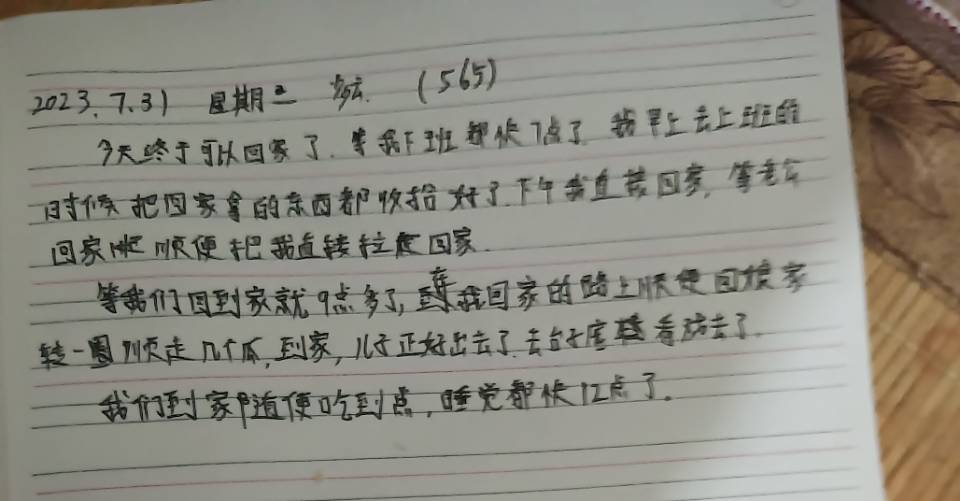 2023.7.31 星期二 (565)
今天终于可以回家了.等我下班都快7点了.我早上去上班的
时候把回家拿的东西都收拾好了.下午我直接回家,等老公
回家顺便把我直接拉走回家.
等我们回到家就9点多了,在我回家的路上顺便回娘家
转一圈顺走几个瓜,到家,儿子正好出去了.去台子看戏去了.
我们到家随便吃到点,睡觉都快12点了.